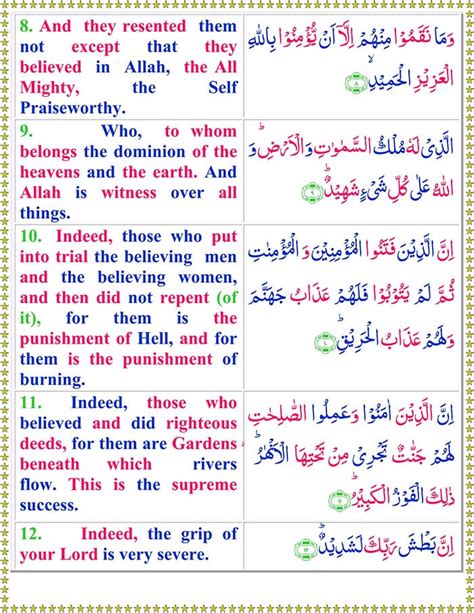 8. And they resented them
not except that they
believed in Allah, the All
Mighty, the Self
Praiseworthy.
وَمَا نَقَمُوۡا مِنۡهُمۡ اِلَّاۤ اَنۡ يُّؤۡمِنُوۡا بِاللّٰهِ
الۡعَزِيۡزِ الۡحَمِيۡدِۙ ﴿۸﴾
9. Who, to whom
belongs the dominion of the
heavens and the earth. And
Allah is witness over all
things.
الَّذِىۡ لَهٗ مُلۡكُ السَّمٰوٰتِ وَالۡاَرۡضِؕ وَ
اللّٰهُ عَلٰى كُلِّ شَىۡءٍ شَهِيۡدٌؕ ﴿۹﴾
10. Indeed, those who put
into trial the believing men
and the believing women,
and then did not repent (of
it), for them is the
punishment of Hell, and for
them is the punishment of
burning.
اِنَّ الَّذِيۡنَ فَتَنُوا الۡمُؤۡمِنِيۡنَ وَ الۡمُؤۡمِنٰتِ
ثُمَّ لَمۡ يَتُوۡبُوۡا فَلَهُمۡ عَذَابُ جَهَنَّمَ
وَلَهُمۡ عَذَابُ الۡحَرِيۡقِؕ ﴿۱۰﴾
11. Indeed, those who
believed and did righteous
deeds, for them are Gardens
beneath which rivers
flow. This is the supreme
success.
اِنَّ الَّذِيۡنَ اٰمَنُوۡا وَعَمِلُوا الصّٰلِحٰتِ
لَهُمۡ جَنّٰتٌ تَجۡرِىۡ مِنۡ تَحۡتِهَا الۡاَنۡهٰرُؕ
ذٰلِكَ الۡفَوۡزُ الۡكَبِيۡرُؕ ﴿۱۱﴾
12. Indeed, the grip of
your Lord is very severe.
اِنَّ بَطۡشَ رَبِّكَ لَشَدِيۡدٌؕ ﴿۱۲﴾